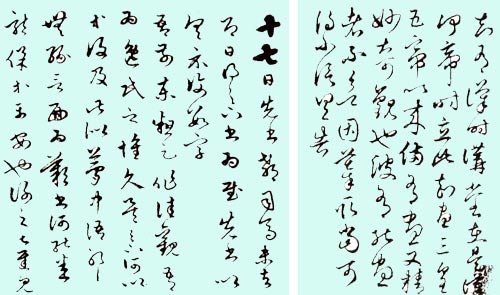 知有漢時講堂在是漢
何帝時立此知畫三皇
五帝以來備有畫又精
妙甚可觀也彼有能畫
者不欲因摹取當可
得不信具告
十七日先書郗司馬未去
即日得足下書為慰先書以
具示復數字
吾前東粗足作佳觀吾
為逸民之懷久矣足下何以
等復及此似夢中語耶
無緣言面為歎書何能悉
龍保等平安也謝之甚遲見